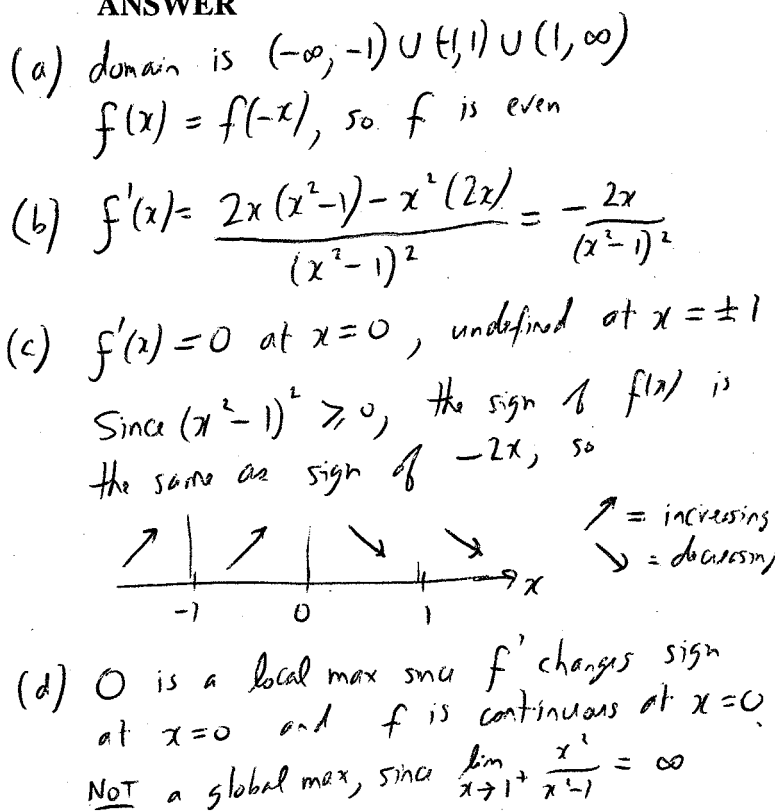 ANSWER
(a) domain is (-∞, -1) ∪ (-1, 1) ∪ (1, ∞)
f(x) = f(-x), so f is even
(b) f'(x) = (2x(x²-1) - x²(2x))/(x²-1)² = - 2x/(x²-1)²
(c) f'(x) = 0 at x = 0, undefined at x = ±1
Since (x²-1)² ≥ 0, the sign of f(x) is
the same as sign of -2x, so
↗ | ↗ | ↘ ↘ ↗ = increasing
↘ = decreasing
x
-1 0 1
(d) 0 is a local max since f' changes sign
at x = 0 and f is continuous at x = 0.
NOT a global max, since lim x→1⁺ x²/(x²-1) = ∞